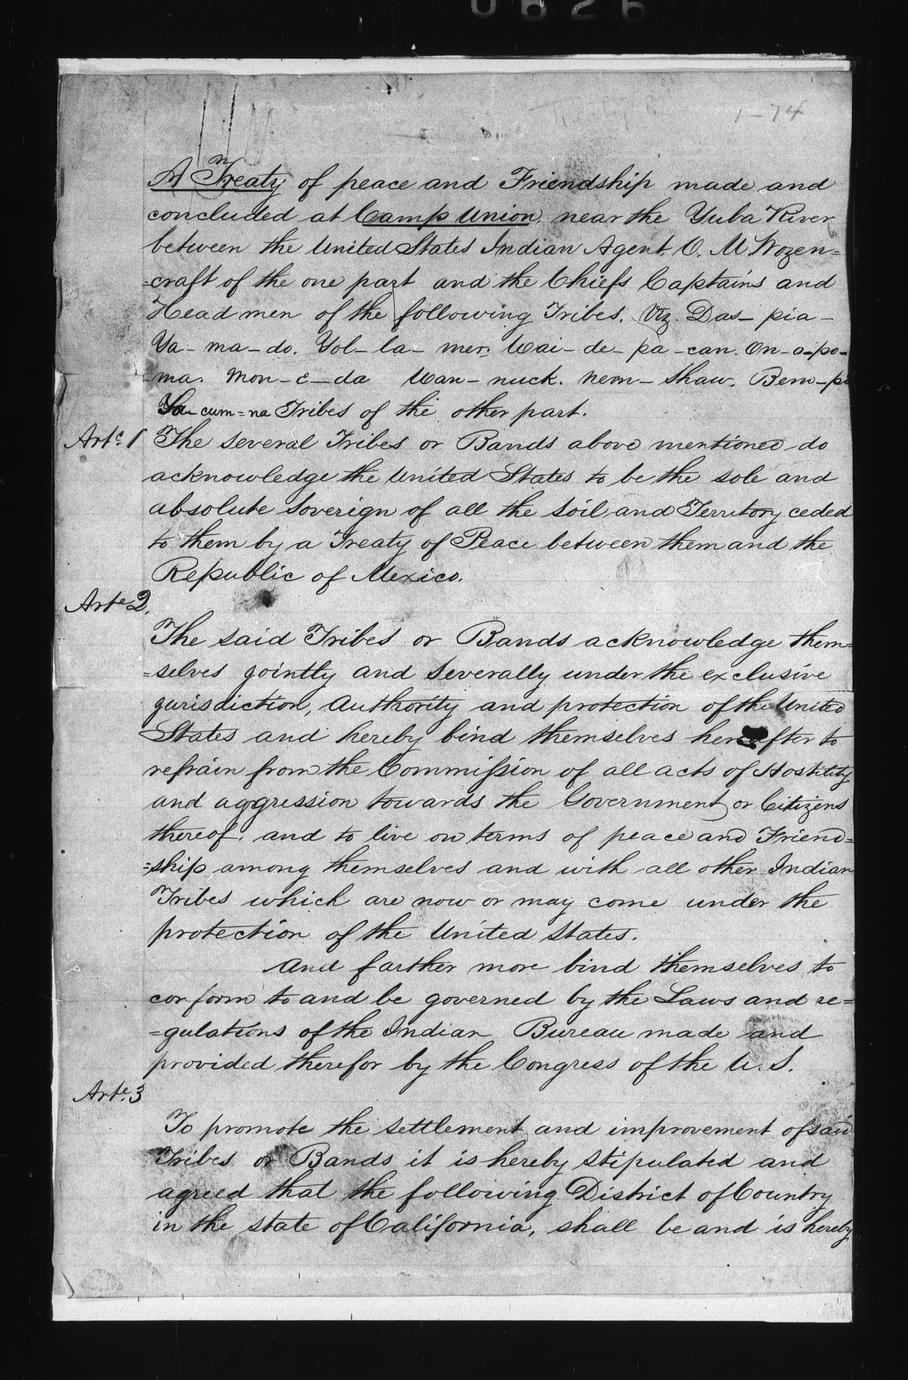 0626
1-74
A Treaty of peace and Friendship made and
concluded at Camp Union near the Yuba River
between the United States Indian Agent. O. M Wozen=
=craft of the one part and the Chiefs Captains and
Head men of the following Tribes. Viz. Das- pia-
Ya- ma- do. Yol- la- mer. Wai- de- pa- can. On- o-po-
-ma. Mon- e- da Wan- nuck. Nem- Shaw. Bem-pi
Ya- cum=na Tribes of the other part.
Arte. 1 The several Tribes or Bands above mentioned do
acknowledge the United States to be the sole and
absolute Soverign of all the Soil and Territory ceded
to them by a Treaty of Peace between them and the
Republic of Mexico.
Arte 2.
The said Tribes or Bands acknowledge them=
=selves jointly and Severally under the exclusive
jurisdiction, Authority and protection of the United
States and hereby bind themselves hereafter to
refrain from the Commission of all acts of Hostility
and aggression towards the Government or Citizens
thereof. and to live on terms of peace and Friend=
=ship among themselves and with all other Indian
Tribes which are now or may come under the
protection of the United States.
And farther more bind themselves to
conform to and be governed by the Laws and re=
=gulations of the Indian Bureau made and
provided therefor by the Congress of the U. S.
Arte. 3
To promote the settlement and improvement of said
Tribes or Bands it is hereby stipulated and
agreed that the following District of Country
in the state of California, shall be and is hereby